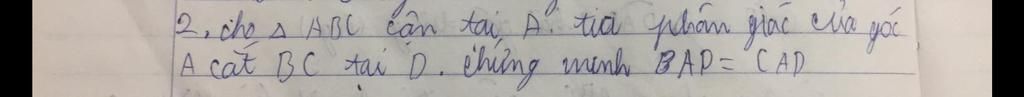 2, cho △ ABC cân tại A. tia phân giác của góc
A cắt BC tại D. chứng minh BAD = CAD